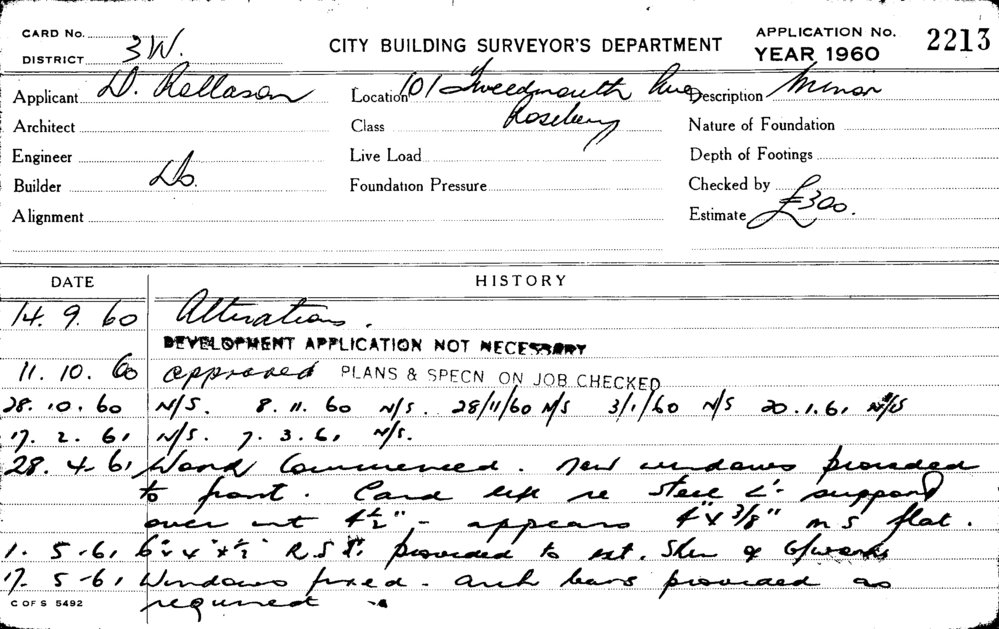 CARD No.
DISTRICT 3W.
CITY BUILDING SURVEYOR'S DEPARTMENT
APPLICATION No. 2213
YEAR 1960
Applicant D. Rollason
Location 101 Tweedmouth Ave
Rosebery
Description Minor
Architect
Class
Nature of Foundation
Engineer
Live Load
Depth of Footings
Builder Do.
Foundation Pressure
Checked by
Alignment
Estimate £300.
DATE HISTORY
14. 9. 60 Alterations.
DEVELOPMENT APPLICATION NOT NECESSARY
11. 10. 60 approved PLANS & SPECN ON JOB CHECKED
28. 10. 60 N/S. 8. 11. 60 N/S. 28/11/60 N/S 3/1/60 N/S 20. 1. 61 N/S
17. 2. 61 N/S. 7. 3. 61 N/S.
28. 4. 61 Work Commenced. New windows provided
to front. Card left re steel L'- support
over int 4½" - appears 4" x 3/8" m s flat.
1. 5. 61 6" x 4" x ½" R.S. provided to ext. Skin of B/work
17. 5. 61 Windows fixed. arch bars provided as
required
C OF S 5492